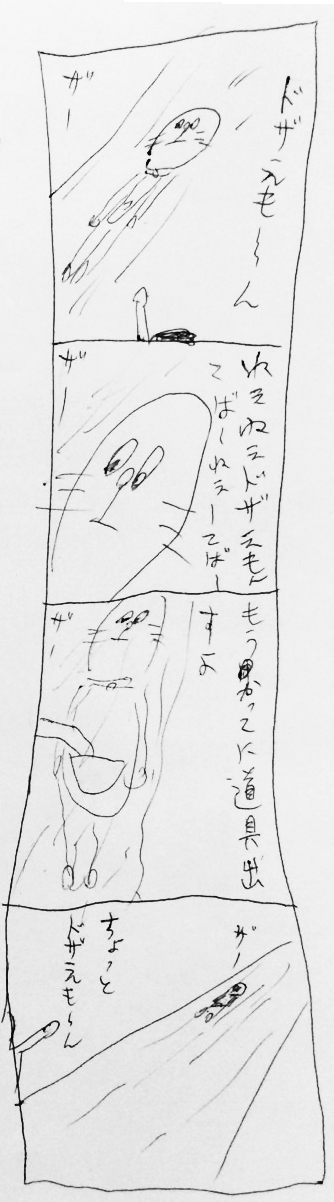 ドザえも〜ん
ザー
ねえねえドザえもん
てば〜ねえーてば〜
ザー
もう勝ってに道具出
すよ
ザー
ザー
ちょっと
ドザえも〜ん